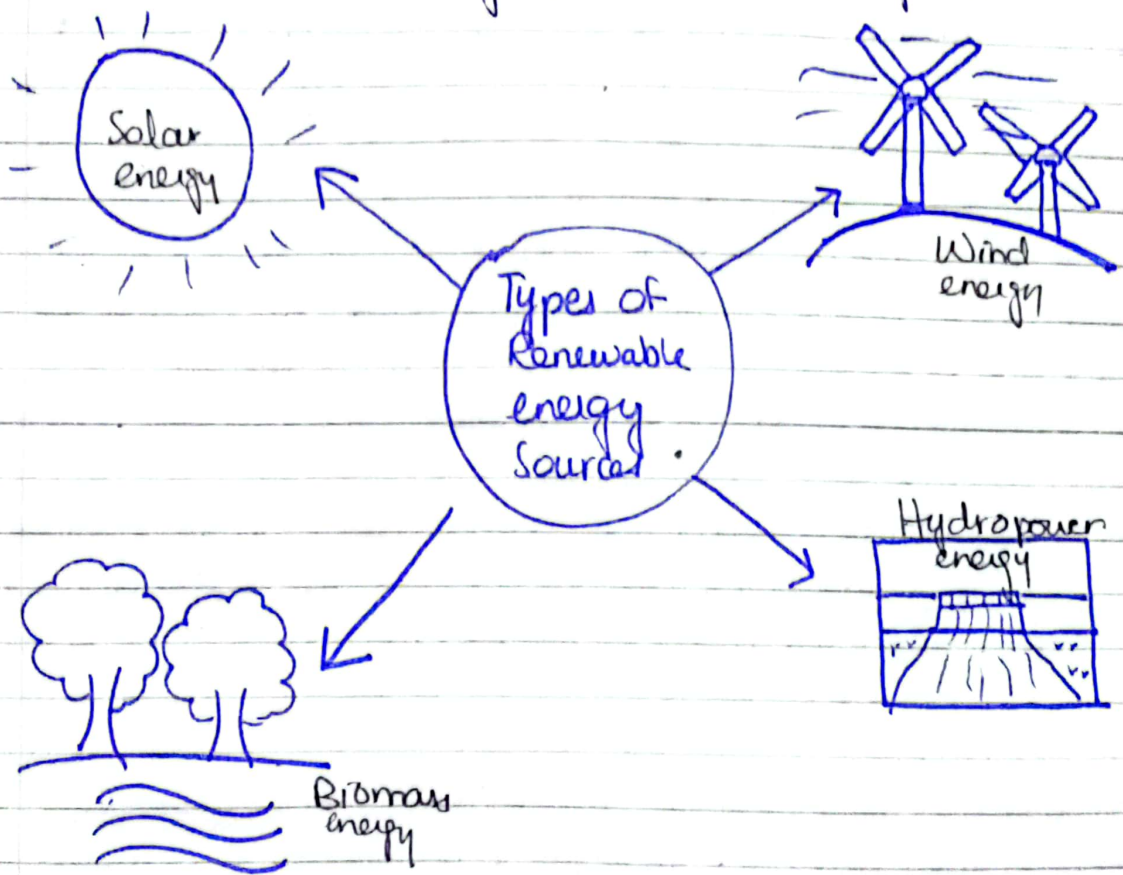 Solar
energy
Wind
energy
Types of
Renewable
energy
Sources
Hydropower
energy
Biomass
energy